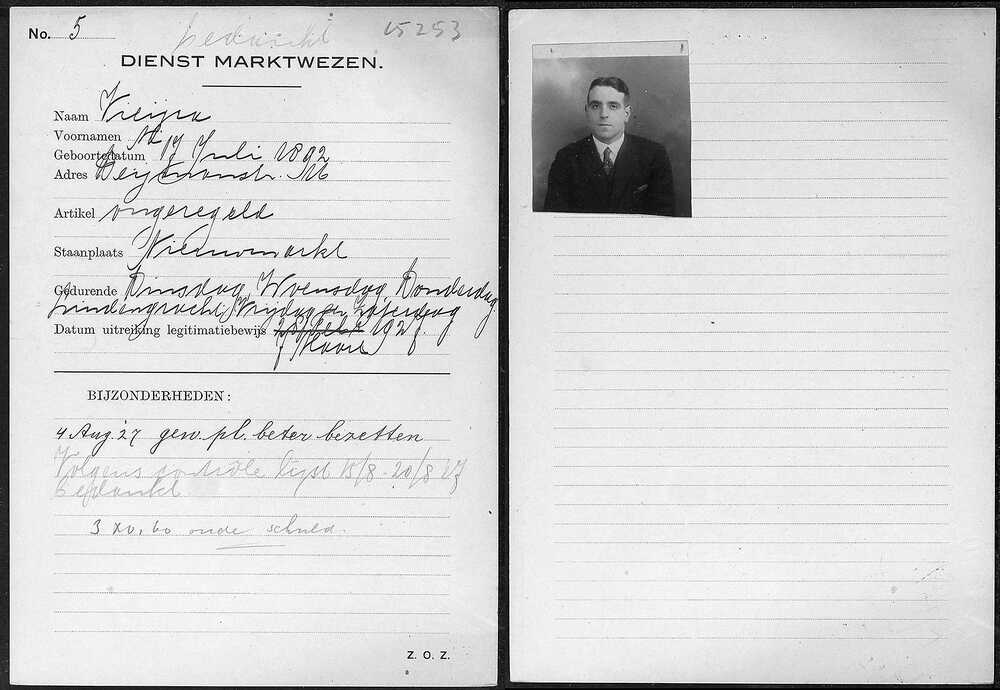 No. 5
bedankt 15253
DIENST MARKTWEZEN.
Naam Vieijra
Voornamen M
Geboortedatum 17 Juli 1892
Adres
Artikel ongeregeld
Staanplaats Nieuwmarkt
Gedurende Dinsdag, Woensdag, Donderdag
Lindengracht, Vrijdag en Zaterdag
Datum uitreiking legitimatiebewijs 192
7 Maart
BIJZONDERHEDEN:
4 Aug. '27 gew. pl. beter bezetten
Volgens controle lijst 15/8 - 20/8 27
bedankt
3 x 0,60 oude schuld.
Z. O. Z.